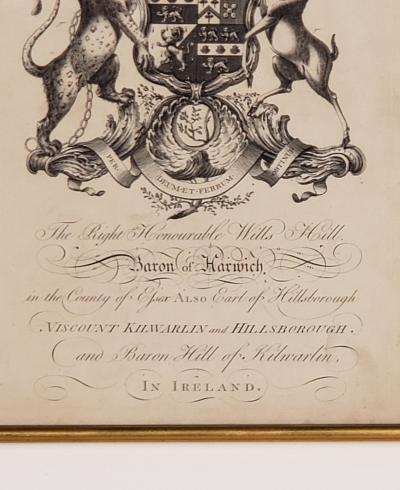 PER DEUM·ET·FERRUM OBTINUI
The Right Honourable Wills Hill,
Baron of Harwich,
in the County of Essex ALSO Earl of Hillsborough
VISCOUNT KILWARLIN and HILLSBOROUGH.
and Baron Hill of Kilwarlin,
IN IRELAND.